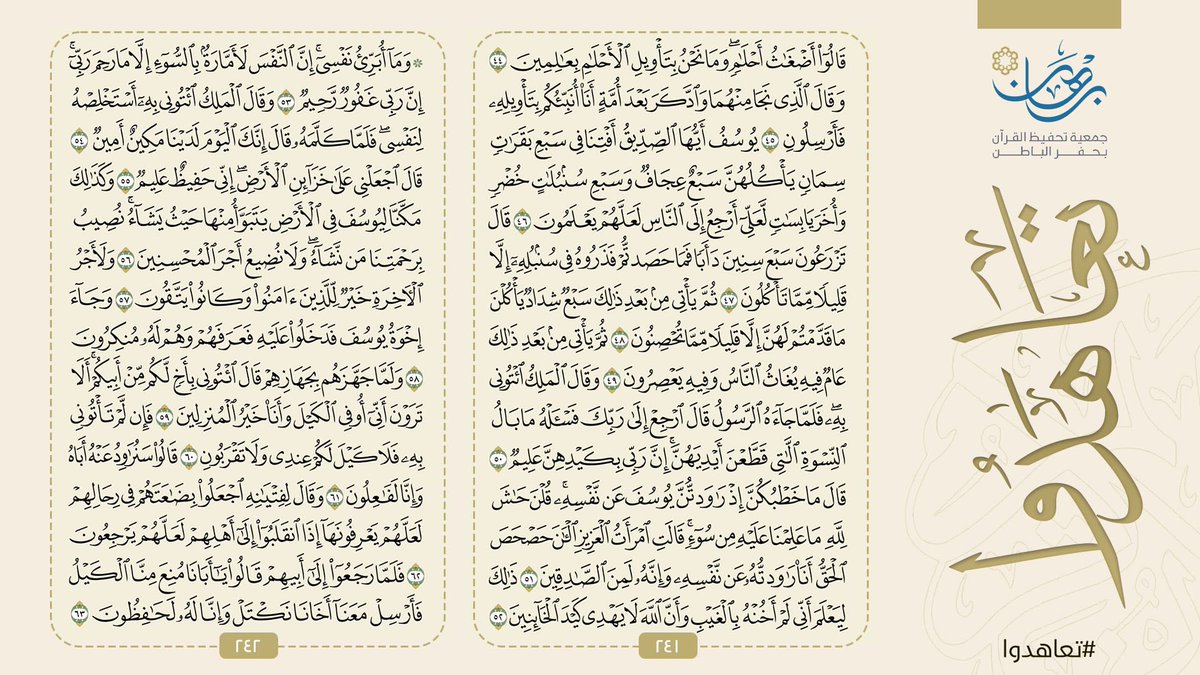 برهان
جمعية تحفيظ القرآن
بحفر الباطن
تعاهدوا
#تعاهدوا
قَالُوٓا۟ أَضْغَٰثُ أَحْلَٰمٍ ۖ وَمَا نَحْنُ بِتَأْوِيلِ ٱلْأَحْلَٰمِ بِعَٰلِمِينَ ٤٤
وَقَالَ ٱلَّذِى نَجَا مِنْهُمَا وَٱدَّكَرَ بَعْدَ أُمَّةٍ أَنَا۠ أُنَبِّئُكُم بِتَأْوِيلِهِۦ
فَأَرْسِلُونِ ٤٥ يُوسُفُ أَيُّهَا ٱلصِّدِّيقُ أَفْتِنَا فِى سَبْعِ بَقَرَٰتٍ
سِمَانٍ يَأْكُلُهُنَّ سَبْعٌ عِجَافٌ وَسَبْعِ سُنۢبُلَٰتٍ خُضْرٍ
وَأُخَرَ يَابِسَٰتٍ لَّعَلِّىٓ أَرْجِعُ إِلَى ٱلنَّاسِ لَعَلَّهُمْ يَعْلَمُونَ ٤٦ قَالَ
تَزْرَعُونَ سَبْعَ سِنِينَ دَأَبًا فَمَا حَصَدتُّمْ فَذَرُوهُ فِى سُنۢبُلِهِۦٓ إِلَّا
قَلِيلًا مِّمَّا تَأْكُلُونَ ٤٧ ثُمَّ يَأْتِى مِنۢ بَعْدِ ذَٰلِكَ سَبْعٌ شِدَادٌ يَأْكُلْنَ
مَا قَدَّمْتُمْ لَهُنَّ إِلَّا قَلِيلًا مِّمَّا تُحْصِنُونَ ٤٨ ثُمَّ يَأْتِى مِنۢ بَعْدِ ذَٰلِكَ
عَامٌ فِيهِ يُغَاثُ ٱلنَّاسُ وَفِيهِ يَعْصِرُونَ ٤٩ وَقَالَ ٱلْمَلِكُ ٱئْتُونِى
بِهِۦ ۖ فَلَمَّا جَآءَهُ ٱلرَّسُولُ قَالَ ٱرْجِعْ إِلَىٰ رَبِّكَ فَسْـَٔلْهُ مَا بَالُ
ٱلنِّسْوَةِ ٱلَّٰتِى قَطَّعْنَ أَيْدِيَهُنَّ ۚ إِنَّ رَبِّى بِكَيْدِهِنَّ عَلِيمٌ ٥٠
قَالَ مَا خَطْبُكُنَّ إِذْ رَٰوَدتُّنَّ يُوسُفَ عَن نَّفْسِهِۦ ۚ قُلْنَ حَٰشَ
لِلَّهِ مَا عَلِمْنَا عَلَيْهِ مِن سُوٓءٍ ۚ قَالَتِ ٱمْرَأَتُ ٱلْعَزِيزِ ٱلْـَٰٔنَ حَصْحَصَ
ٱلْحَقُّ أَنَا۠ رَٰوَدتُّهُۥ عَن نَّفْسِهِۦ وَإِنَّهُۥ لَمِنَ ٱلصَّٰدِقِينَ ٥١ ذَٰلِكَ
لِيَعْلَمَ أَنِّى لَمْ أَخُنْهُ بِٱلْغَيْبِ وَأَنَّ ٱللَّهَ لَا يَهْدِى كَيْدَ ٱلْخَآئِنِينَ ٥٢
٢٤١
۞ وَمَآ أُبَرِّئُ نَفْسِىٓ ۚ إِنَّ ٱلنَّفْسَ لَأَمَّارَةٌۢ بِٱلسُّوٓءِ إِلَّا مَا رَحِمَ رَبِّىٓ ۚ
إِنَّ رَبِّى غَفُورٌ رَّحِيمٌ ٥٣ وَقَالَ ٱلْمَلِكُ ٱئْتُونِى بِهِۦٓ أَسْتَخْلِصْهُ
لِنَفْسِى ۖ فَلَمَّا كَلَّمَهُۥ قَالَ إِنَّكَ ٱلْيَوْمَ لَدَيْنَا مَكِينٌ أَمِينٌ ٥٤
قَالَ ٱجْعَلْنِى عَلَىٰ خَزَآئِنِ ٱلْأَرْضِ ۖ إِنِّى حَفِيظٌ عَلِيمٌ ٥٥ وَكَذَٰلِكَ
مَكَّنَّا لِيُوسُفَ فِى ٱلْأَرْضِ يَتَبَوَّأُ مِنْهَا حَيْثُ يَشَآءُ ۚ نُصِيبُ
بِرَحْمَتِنَا مَن نَّشَآءُ ۖ وَلَا نُضِيعُ أَجْرَ ٱلْمُحْسِنِينَ ٥٦ وَلَأَجْرُ
ٱلْـَٔاخِرَةِ خَيْرٌ لِّلَّذِينَ ءَامَنُوا۟ وَكَانُوا۟ يَتَّقُونَ ٥٧ وَجَآءَ
إِخْوَةُ يُوسُفَ فَدَخَلُوا۟ عَلَيْهِ فَعَرَفَهُمْ وَهُمْ لَهُۥ مُنكِرُونَ
٥٨ وَلَمَّا جَهَّزَهُم بِجَهَازِهِمْ قَالَ ٱئْتُونِى بِأَخٍ لَّكُم مِّنْ أَبِيكُمْ ۚ أَلَا
تَرَوْنَ أَنِّىٓ أُوفِى ٱلْكَيْلَ وَأَنَا۠ خَيْرُ ٱلْمُنزِلِينَ ٥٩ فَإِن لَّمْ تَأْتُونِى
بِهِۦ فَلَا كَيْلَ لَكُمْ عِندِى وَلَا تَقْرَبُونِ ٦٠ قَالُوا۟ سَنُرَٰوِدُ عَنْهُ أَبَاهُ
وَإِنَّا لَفَٰعِلُونَ ٦١ وَقَالَ لِفِتْيَٰنِهِ ٱجْعَلُوا۟ بِضَٰعَتَهُمْ فِى رِحَالِهِمْ
لَعَلَّهُمْ يَعْرِفُونَهَآ إِذَا ٱنقَلَبُوٓا۟ إِلَىٰٓ أَهْلِهِمْ لَعَلَّهُمْ يَرْجِعُونَ
٦٢ فَلَمَّا رَجَعُوٓا۟ إِلَىٰٓ أَبِيهِمْ قَالُوا۟ يَٰٓأَبَانَا مُنِعَ مِنَّا ٱلْكَيْلُ
فَأَرْسِلْ مَعَنَآ أَخَانَا نَكْتَلْ وَإِنَّا لَهُۥ لَحَٰفِظُونَ ٦٣
٢٤٢